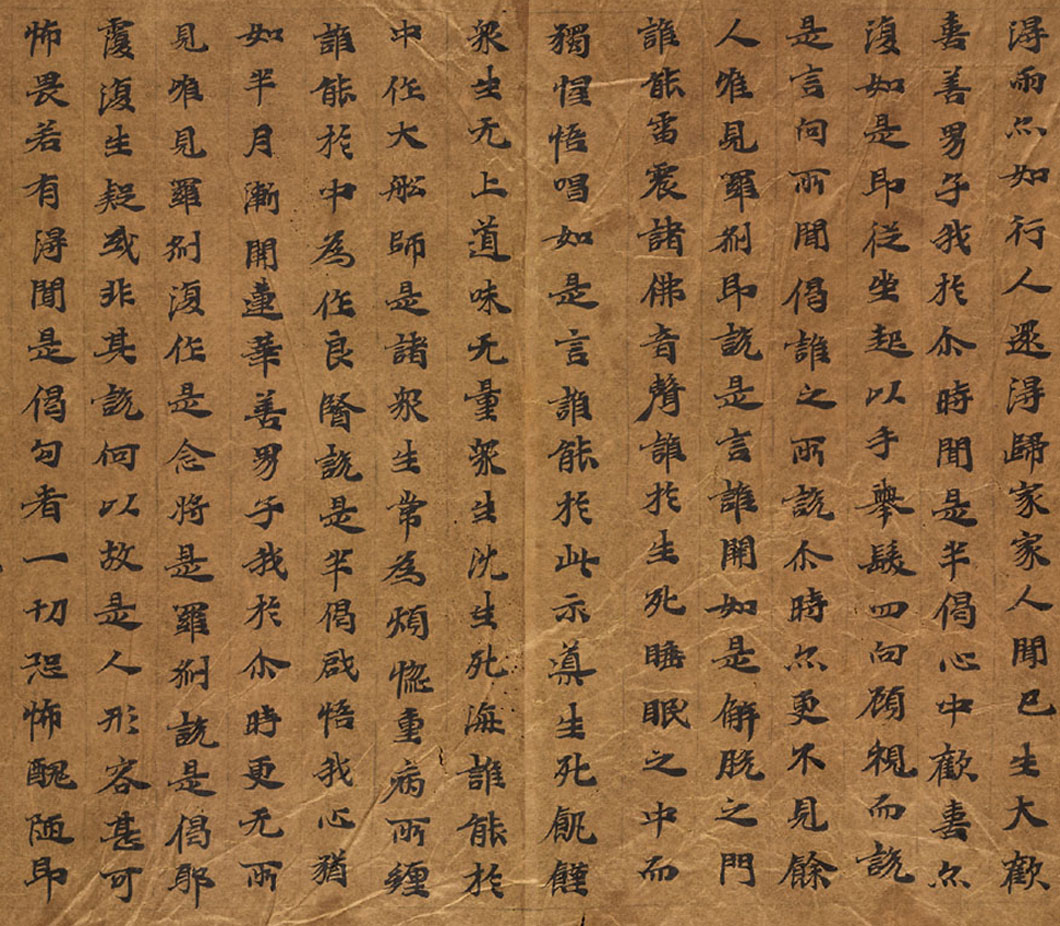 得雨亦如行人還得歸家家人聞已生大歡
喜善男子我於尒時聞是半偈心中歡喜亦
復如是即從坐起以手舉髮四向顧視而說
是言向所聞偈誰之所說尒時亦更不見餘
人唯見羅刹即說是言誰開如是解脫之門
誰能雷震諸佛音聲誰於生死睡眠之中而
獨惺悟唱如是言誰能於此示導生死飢饉
衆生无上道味无量衆生沈生死海誰能於
中作大舩師是諸衆生常為煩惚重病所纏
誰能於中為作良醫說是半偈啟悟我心猶
如半月漸開蓮華善男子我於尒時更无所
見唯見羅刹復作是念將是羅刹說是偈耶
覆復生疑或非其說何以故是人形容甚可
怖畏若有得聞是偈句者一切恐怖醜陋即